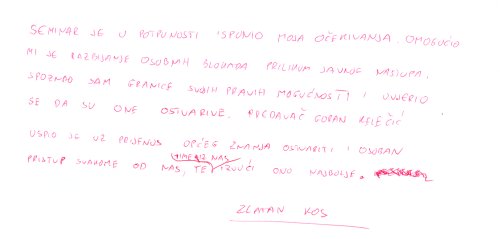 SEMINAR SE U POTPUNOSTI ISPUNIO MOJA OČEKIVANJA. OMOGUĆIO
MI JE RAZBIJANJE OSOBNIH BLOKADA PRILIKOM JAVNOG NASTUPA.
SPOZNAO SAM GRANICE SVOJIH PRAVIH MOGUĆNOSTI I UVJERIO
SE DA SU ONE OSTVARIVE. PREDAVAČ GORAN
USPIO JE UZ PRIJENOS OPĆEG ZNANJA OSTVARITI I OSOBAN
TIME IZ NAS
PRISTUP SVAKOME OD NAS, TE IZVUĆI ONO NAJBOLJE.
ZLATAN KOS